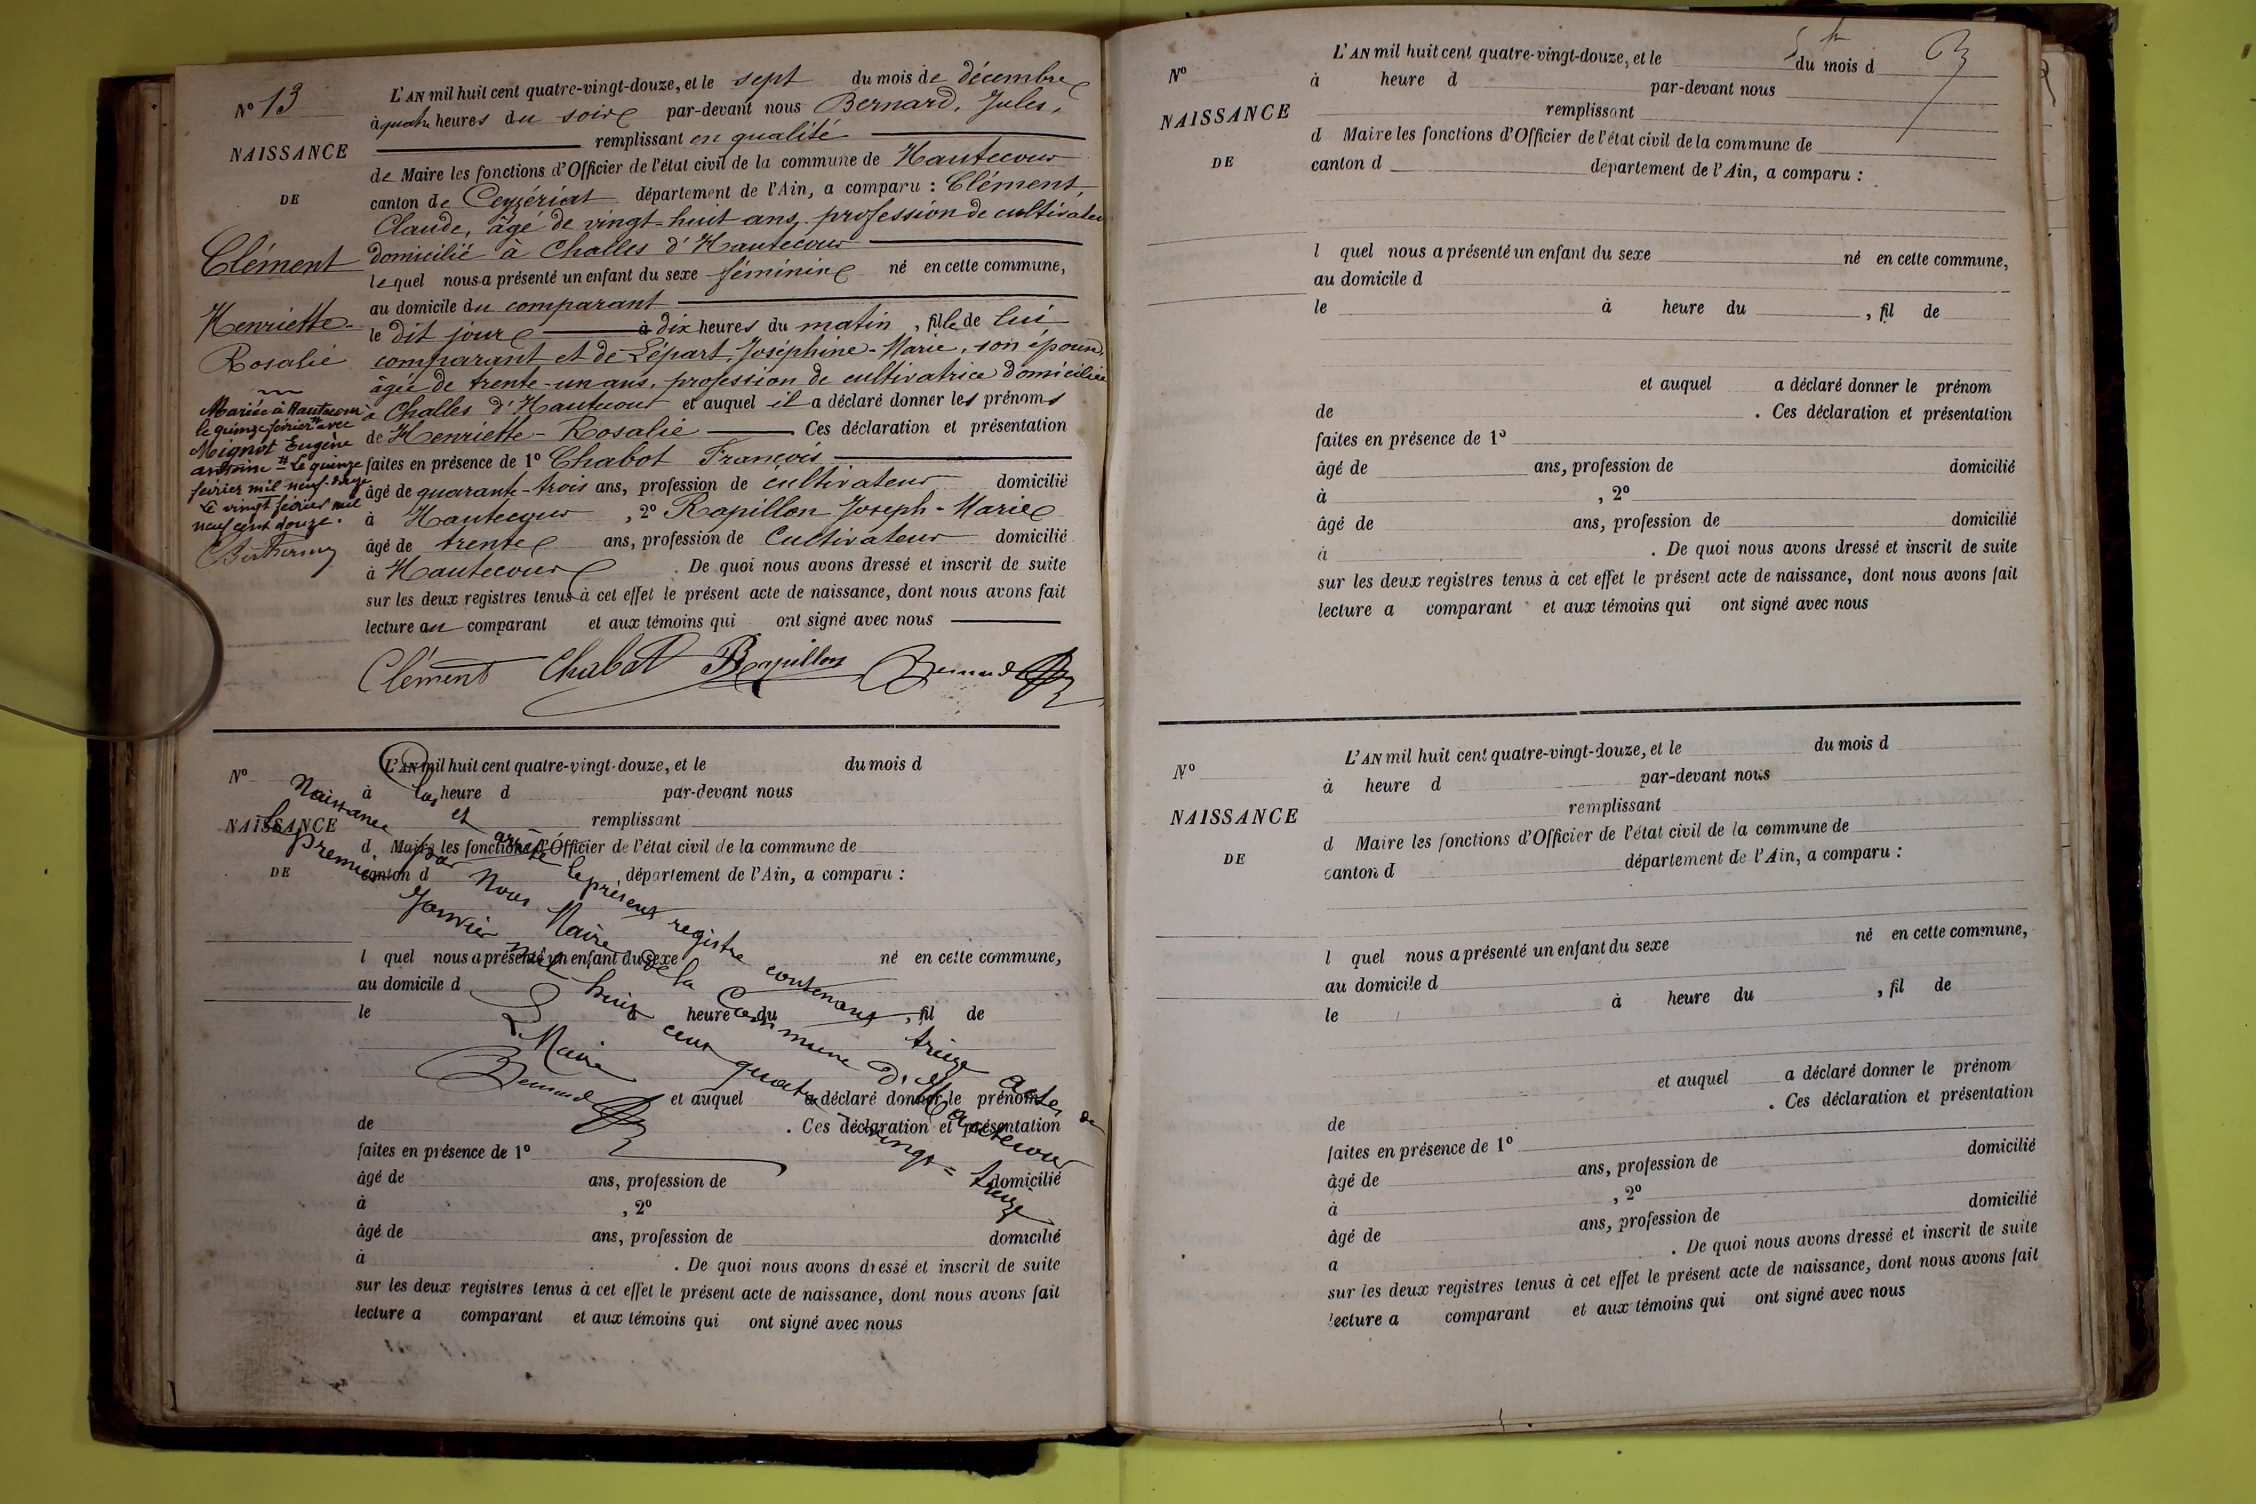 N° 13
NAISSANCE
DE
Clément
Henriette-
Rosalie
Mariée à Hautecour
le quinze février # avec
Mignot Eugène
antoine # Le quinze
février mil neuf-douze
Le vingt février mil
neuf cent douze.
L'AN mil huit cent quatre-vingt-douze, et le sept du mois de décembre
à quatre heures du soir par-devant nous Bernard, Jules,
remplissant en qualité
de Maire les fonctions d'Officier de l'état civil de la commune de Hautecour
canton de Ceyzériat département de l'Ain, a comparu : Clément,
Claude, âgé de vingt-huit ans, profession de cultivateur
domicilié à Challes d'Hautecour
lequel nous a présenté un enfant du sexe féminin né en cette commune,
au domicile du comparant
le dit jour à dix heures du matin, fille de lui
comparant et de Lépart, Joséphine-Marie, son épouse,
âgée de trente-un ans, profession de cultivatrice domiciliée
à Challes d'Hautecour et auquel il a déclaré donner les prénoms
de Henriette-Rosalie Ces déclaration et présentation
faites en présence de 1° Chabot François
âgé de quarante-trois ans, profession de cultivateur domicilié
à Hautecour, 2° Rapillon Joseph-Marie
âgé de trente ans, profession de Cultivateur domicilié
à Hautecour. De quoi nous avons dressé et inscrit de suite
sur les deux registres tenus à cet effet le présent acte de naissance, dont nous avons fait
lecture au comparant et aux témoins qui ont signé avec nous
Clément Chabot Rapillon Bernard
N°
NAISSANCE
DE
L'AN mil huit cent quatre-vingt-douze, et le du mois d
à heure d par-devant nous
remplissant
d Maire les fonctions d'Officier de l'état civil de la commune de
canton d département de l'Ain, a comparu :
l quel nous a présenté un enfant du sexe né en cette commune,
au domicile d
le à heure du , fil de
et auquel a déclaré donner le prénom
de . Ces déclaration et présentation
faites en présence de 1°
âgé de ans, profession de domicilié
à , 2°
âgé de ans, profession de domicilié
à . De quoi nous avons dressé et inscrit de suite
sur les deux registres tenus à cet effet le présent acte de naissance, dont nous avons fait
lecture a comparant et aux témoins qui ont signé avec nous
Clos et arrêté le présent registre contenant treize actes de
Naissance par Nous Maire de la Commune d'Hautecour
le premier Janvier mil huit cent quatre-vingt-treize
Le Maire
Bernard
N°
NAISSANCE
DE
L'AN mil huit cent quatre-vingt-douze, et le du mois d
à heure d par-devant nous
remplissant
d Maire les fonctions d'Officier de l'état civil de la commune de
canton d département de l'Ain, a comparu :
l quel nous a présenté un enfant du sexe né en cette commune,
au domicile d
le à heure du , fil de
et auquel a déclaré donner le prénom
de . Ces déclaration et présentation
faites en présence de 1°
âgé de ans, profession de domicilié
à , 2°
âgé de ans, profession de domicilié
à . De quoi nous avons dressé et inscrit de suite
sur les deux registres tenus à cet effet le présent acte de naissance, dont nous avons fait
lecture a comparant et aux témoins qui ont signé avec nous
N°
NAISSANCE
DE
L'AN mil huit cent quatre-vingt-douze, et le du mois d
à heure d par-devant nous
remplissant
d Maire les fonctions d'Officier de l'état civil de la commune de
canton d département de l'Ain, a comparu :
l quel nous a présenté un enfant du sexe né en cette commune,
au domicile d
le à heure du , fil de
et auquel a déclaré donner le prénom
de . Ces déclaration et présentation
faites en présence de 1°
âgé de ans, profession de domicilié
à , 2°
âgé de ans, profession de domicilié
a . De quoi nous avons dressé et inscrit de suite
sur les deux registres tenus à cet effet le présent acte de naissance, dont nous avons fait
lecture a comparant et aux témoins qui ont signé avec nous